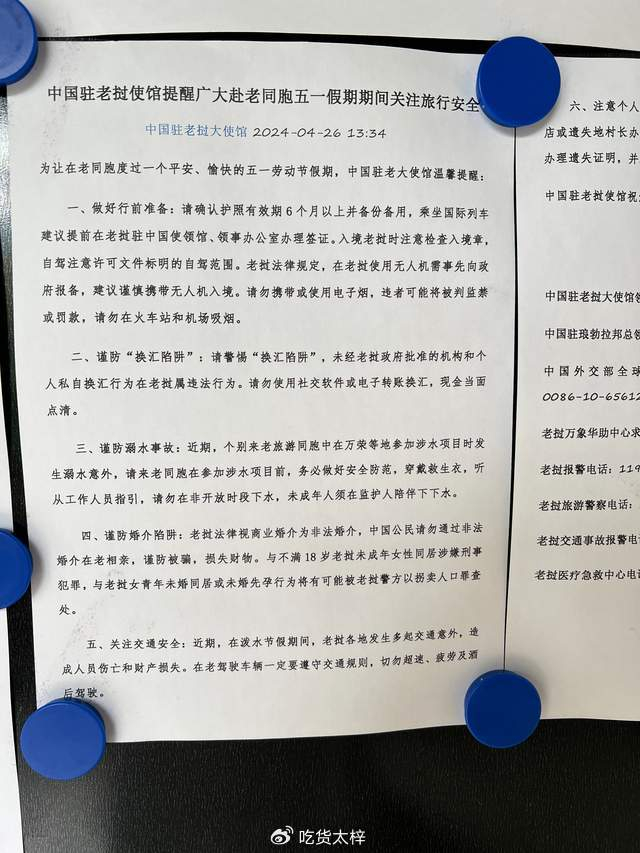 中国驻老挝使馆提醒广大赴老同胞五一假期期间关注旅行安全
中国驻老挝大使馆 2024-04-26 13:34
为让在老同胞度过一个平安、愉快的五一劳动节假期，中国驻老大使馆温馨提醒：
一、做好行前准备：请确认护照有效期6个月以上并备份备用，乘坐国际列车
建议提前在老挝驻中国使领馆、领事办公室办理签证。入境老挝时注意检查入境章，
自驾注意许可文件标明的自驾范围。老挝法律规定，在老挝使用无人机需事先向政
府报备，建议谨慎携带无人机入境。请勿携带或使用电子烟，违者可能将被判监禁
或罚款，请勿在火车站和机场吸烟。
二、谨防“换汇陷阱”：请警惕“换汇陷阱”，未经老挝政府批准的机构和个
人私自换汇行为在老挝属违法行为。请勿使用社交软件或电子转账换汇，现金当面
点清。
三、谨防溺水事故：近期，个别来老旅游同胞中在万荣等地参加涉水项目时发
生溺水意外，请来老同胞在参加涉水项目前，务必做好安全防范，穿戴救生衣，听
从工作人员指引，请勿在非开放时段下水，未成年人须在监护人陪伴下下水。
四、谨防婚介陷阱：老挝法律视商业婚介为非法婚介，中国公民请勿通过非法
婚介在老相亲，谨防被骗，损失财物。与不满18岁老挝未成年女性同居涉嫌刑事
犯罪，与老挝女青年未婚同居或未婚先孕行为将有可能被老挝警方以拐卖人口罪查
处。
五、关注交通安全：近期，在泼水节假期间，老挝各地发生多起交通意外，造
成人员伤亡和财产损失。在老驾驶车辆一定要遵守交通规则，切勿超速、疲劳及酒
后驾驶。
六、注意个人
店或遗失地村长办
办理遗失证明，并
中国驻老挝使馆祝
中国驻老挝大使馆领
中国驻琅勃拉邦总领
中国外交部全球
0086-10-65612
老挝万象华助中心求
老挝报警电话：119
老挝旅游警察电话：
老挝交通事故报警电
老挝医疗急救中心电
吃货太梓